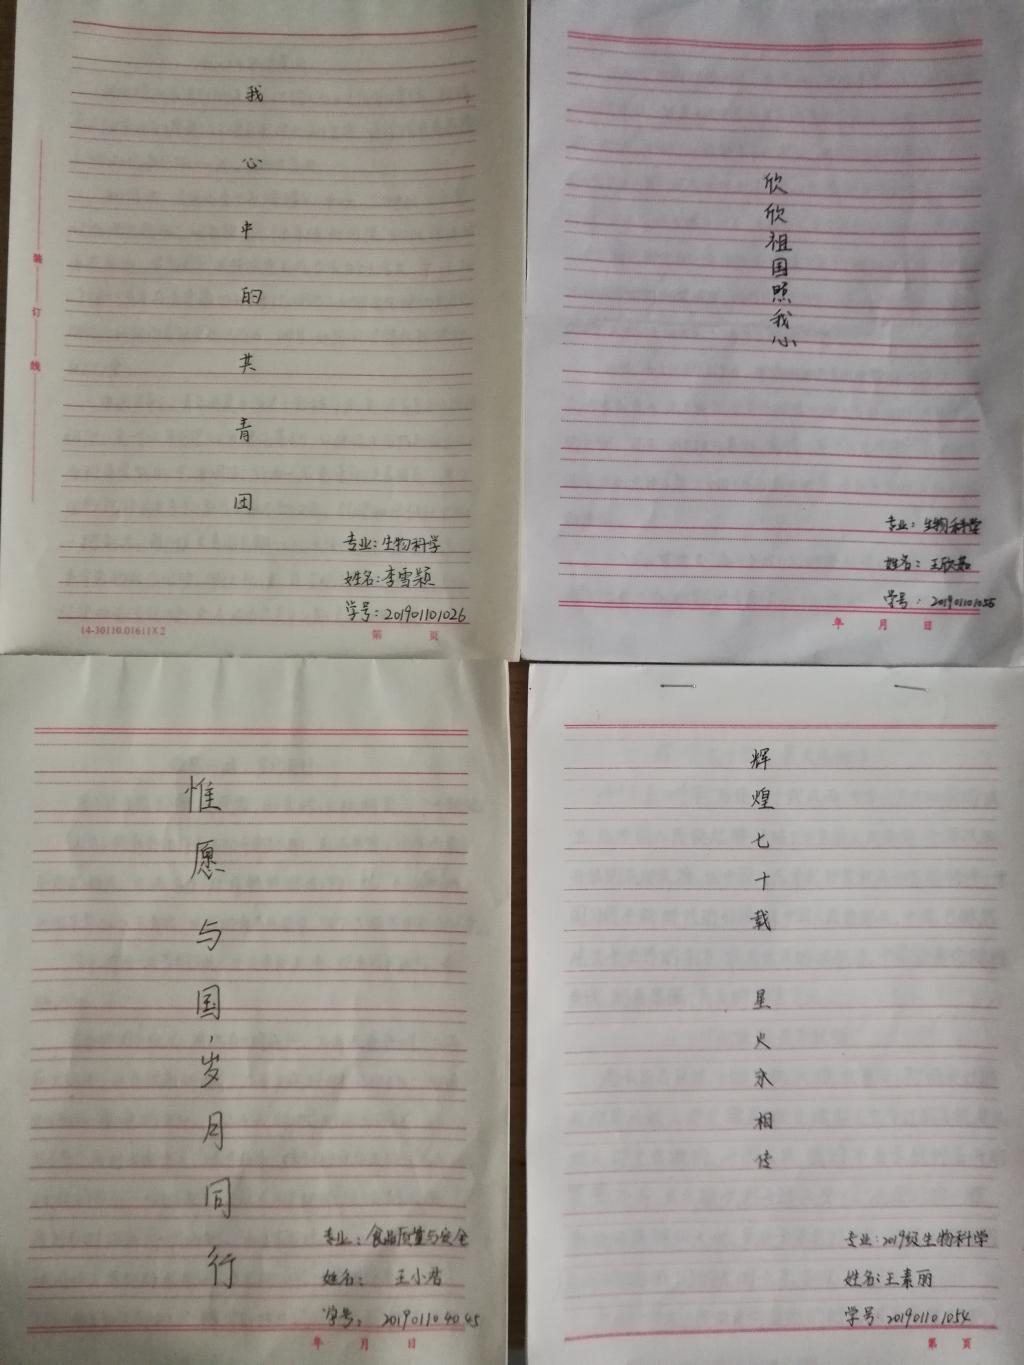 我心中的共青团
装订线
专业:生物科学
姓名:李雪颖
学号:201901101026
14-30110.01611X2
第 页
欣欣祖国照我心
专业:生物科学
姓名:王欣茹
学号:201901101055
年 月 日
惟愿与国,岁月同行
专业:食品质量与安全
姓名:王小君
学号:201901104045
年 月 日
辉煌七十载
星火永相传
专业:2019级生物科学
姓名:王素丽
学号:201901101054
第 页